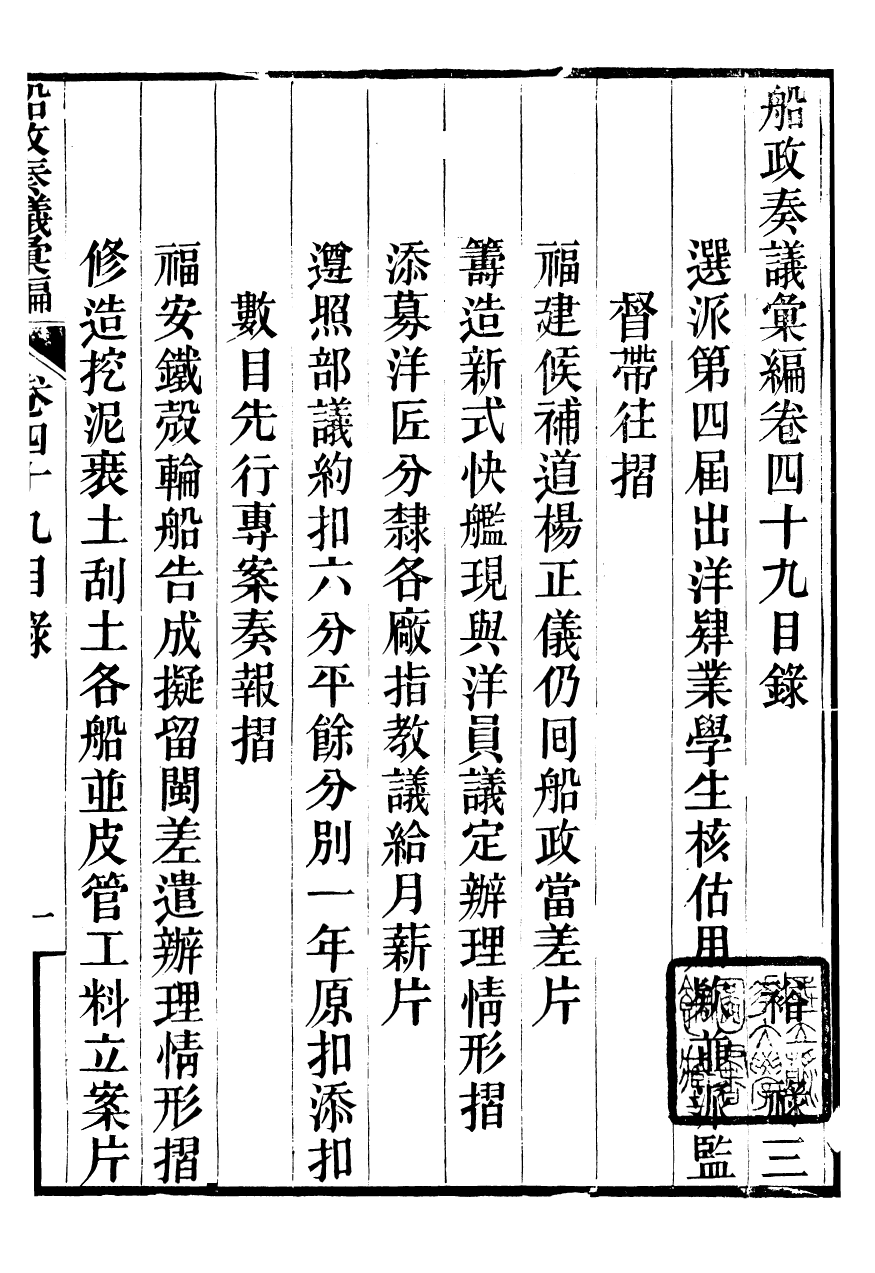 船政奏議彙編卷四十九目錄 裕祿三
選派第四屆出洋肄業學生核估用款並派監
督帶往摺
福建候補道楊正儀仍囘船政當差片
籌造新式快艦現與洋員議定辦理情形摺
添募洋匠分隸各廠指教議給月薪片
遵照部議約扣六分平餘分別一年原扣添扣
數目先行專案奏報摺
福安鐵殼輪船告成擬留閩差遣辦理情形摺
修造挖泥裝土刮土各船並皮管工料立案片
船政奏議彙編 卷四十九目錄 一